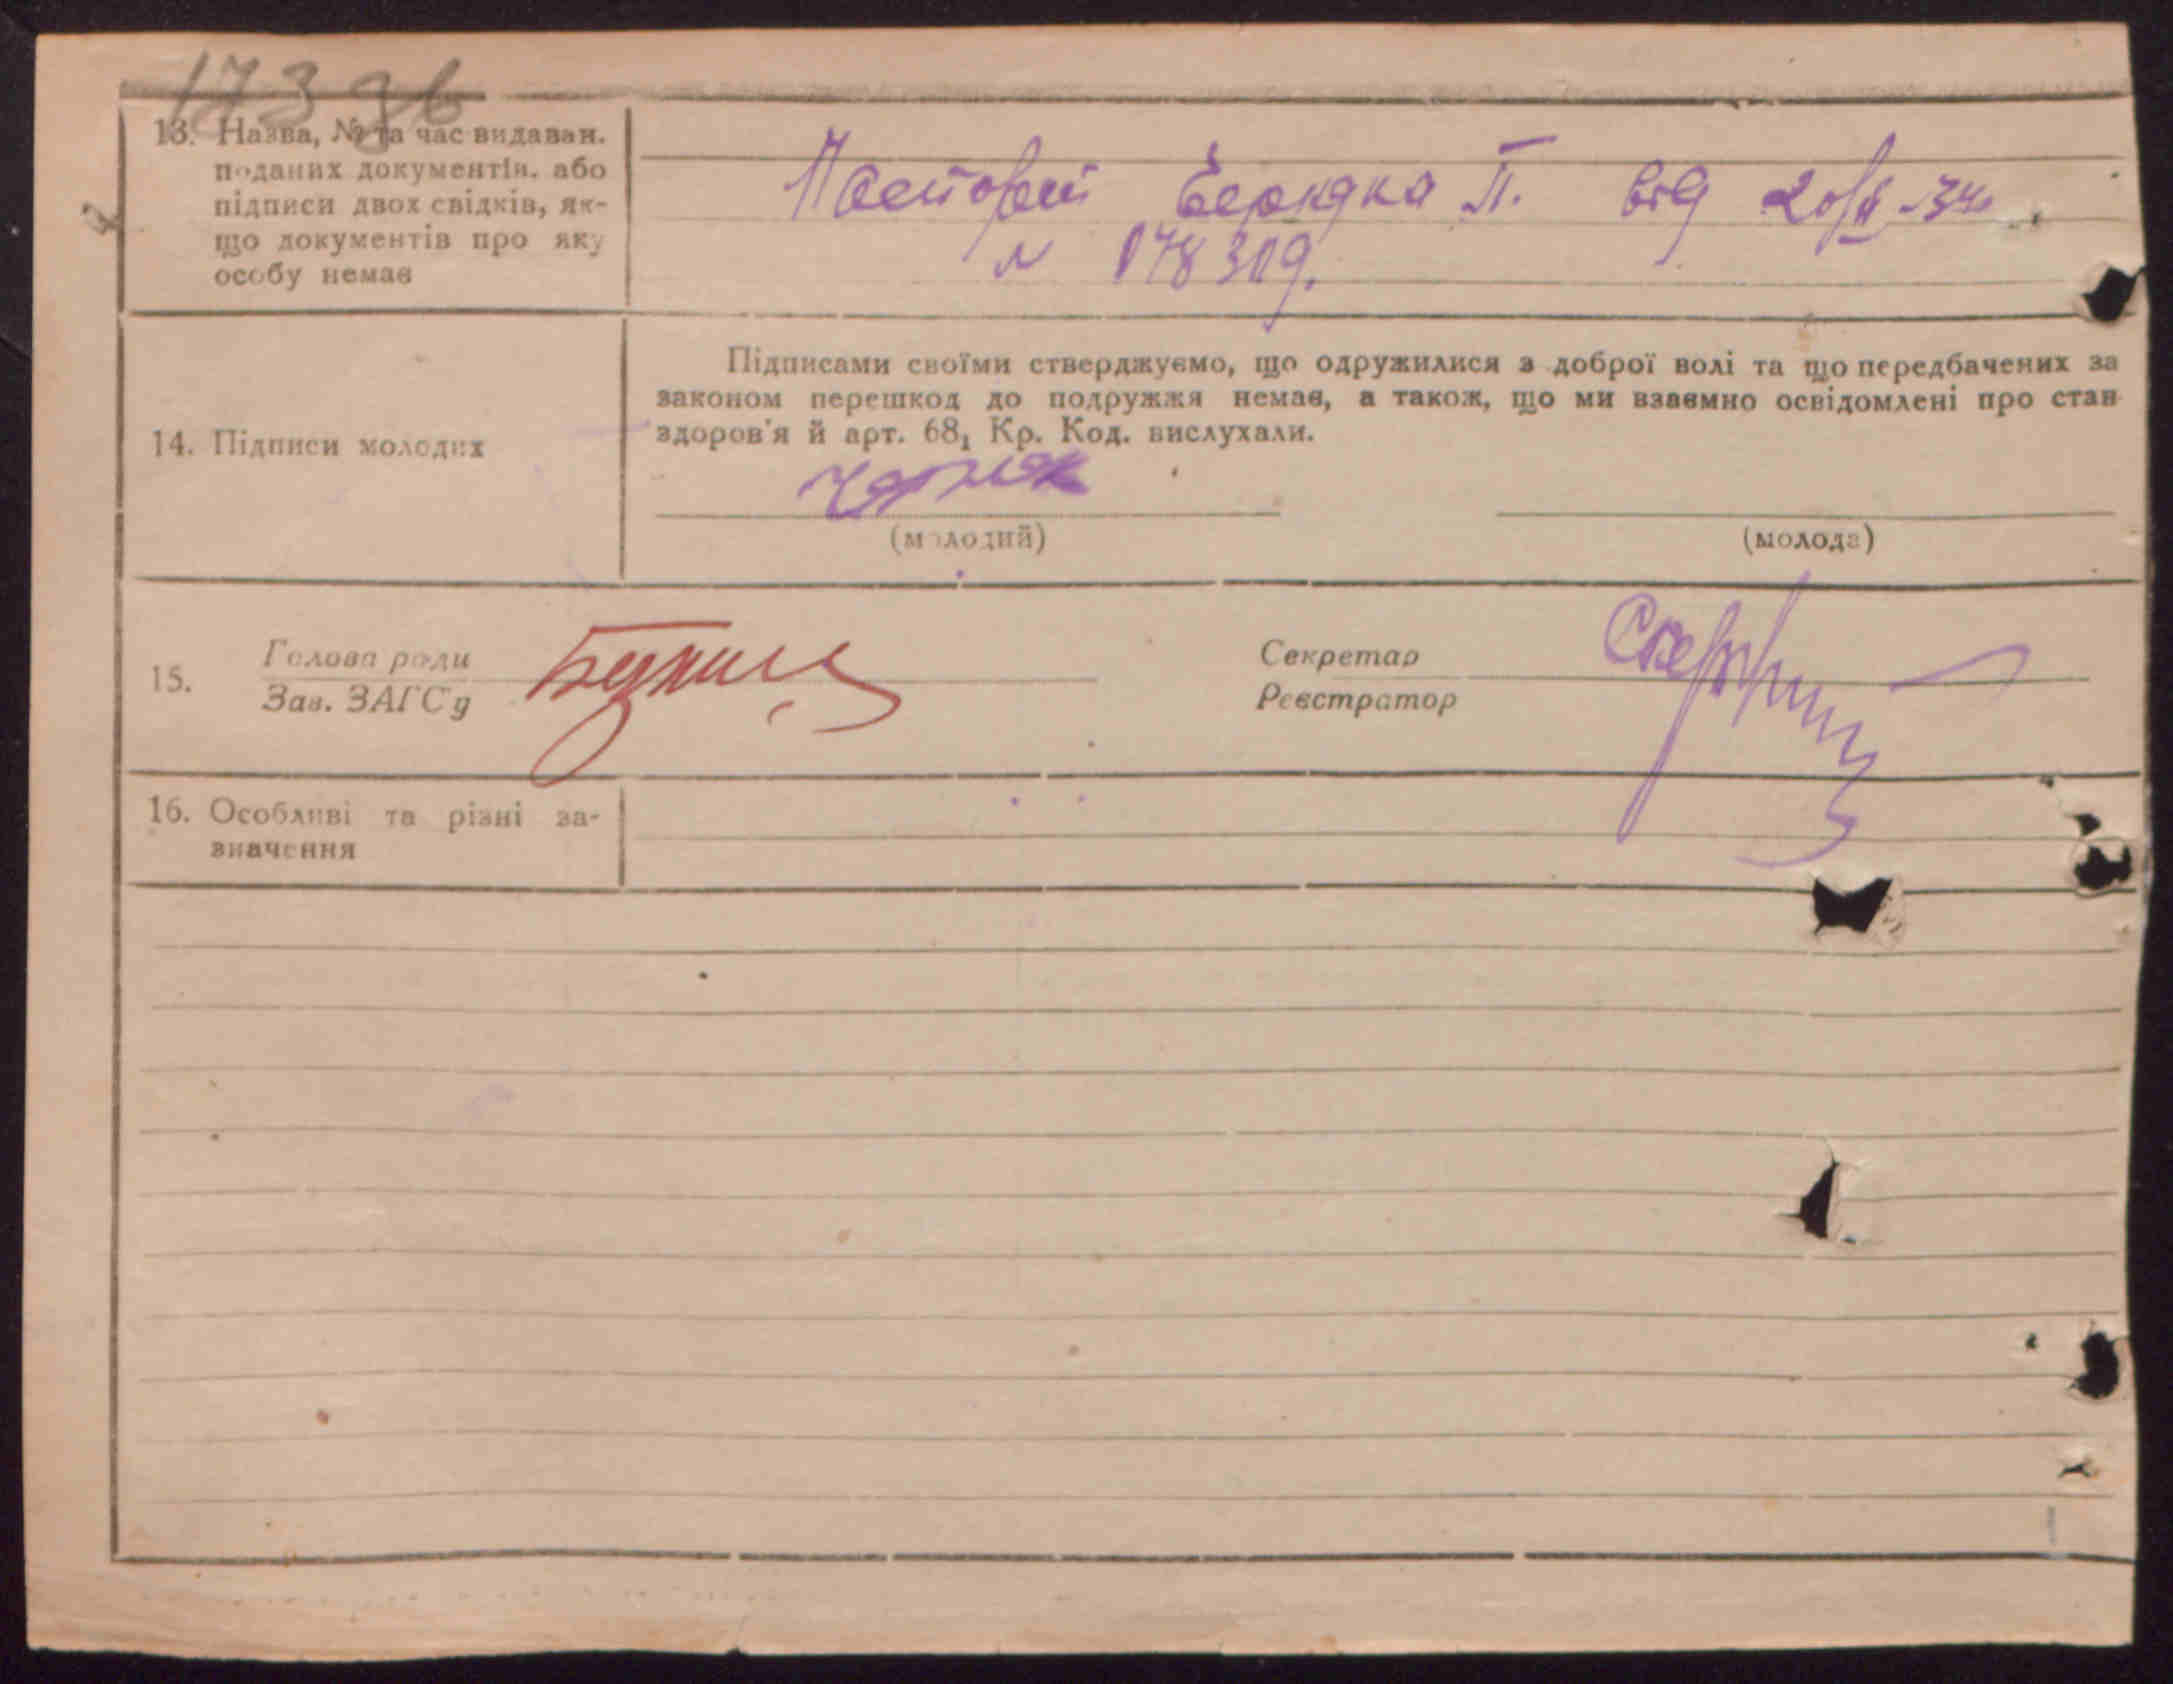 173 зв
13. Назва, № та час видаван.
поданих документів, або
підписи двох свідків, як-
що документів про яку
особу немає
Паспорт П. від 20/II-34.
N 178319.
14. Підписи молодих
Підписами своїми стверджуємо, що одружилися з доброї волі та що передбачених за
законом перешкод до подружжя немає, а також, що ми взаємно освідомлені про стан
здоров'я й арт. 68₁ Кр. Код. вислухали.
(молодий)
(молода)
15.
Голова ради
Зав. ЗАГСу
Секретар
Реєстратор
16. Особливі та різні за-
значення